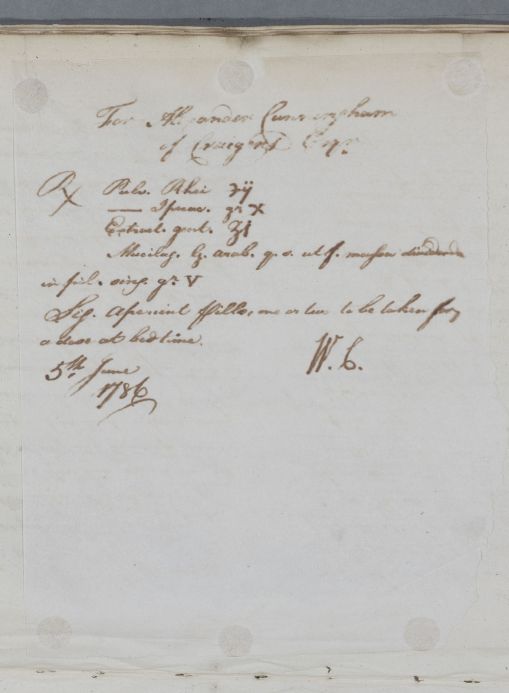 For Alexander Cunningham
of Craigends Esqr.
℞ Pulv. Rhei ʒij
— Ipecac. gr x
Extract. gent. ʒi
Mucilag. G. arab. q. s. ut f. massa dividenda
in pil. sing. gr V
Sig. Aperient Pills, one or two to be taken for
a dose at bedtime.
W. C.
5th June
1786